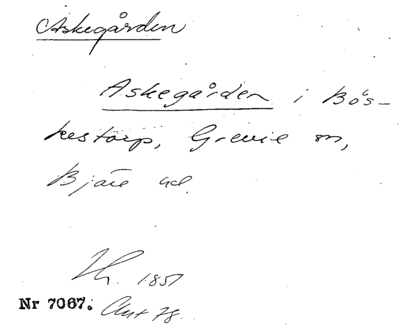 Askegården
Askegården i Bös-
kestorp, Grevie sn,
Bjäre hd.
1851
Nr 7067. Ant 78.